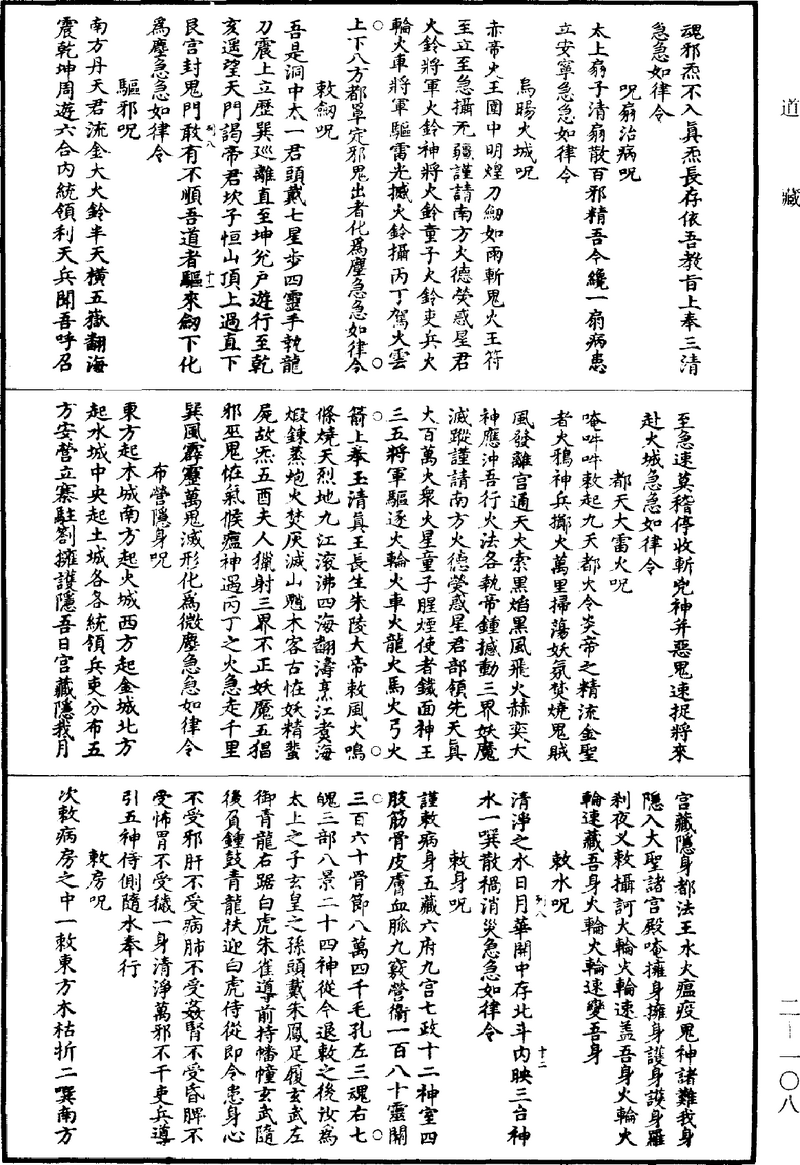 道藏
魂邪炁不入眞炁長存依吾教旨上奉三清
急急如律令
呪扇治病呪
太上扇子清扇散百邪精吾今纔一扇病患
立安寧急急如律令
烏暘火城呪
赤帝火王圍中明煌刀劒如雨斬鬼火王符
至立至急攝无疆謹請南方火德熒惑星君
火鈴將軍火鈴神將火鈴童子火鈴吏兵火
輪火車將軍驅雷光撼火鈴攝丙丁駕火雲
上下八方都罩定邪鬼出者化爲塵急急如律令
敕劒呪
吾是洞中太一君頭戴七星步四靈手執龍
刀震上立歷巽巡離直至坤兊戶遊行至乾
亥遥望天門謁帝君坎子恒山頂上過直下
艮宫封鬼門敢有不順吾道者驅來劒下化
爲塵急急如律令
驅邪呪
南方丹天君流金大火鈴半天橫五嶽翻海
震乾坤周遊六合内統領利天兵聞吾呼召
至急速莫稽停收斬兇神并惡鬼速捉將來
赴火城急急如律令
都天大雷火呪
唵吽吽敕起九天都火令炎帝之精流金聖
者火鴉神兵擲火萬里掃蕩妖氛焚燒鬼賊
風發離宫通天火索黑焰黑風飛火赫奕大
神應沖吾行火法各執帝鍾撼動三界妖魔
滅蹤謹請南方火德熒惑星君部領先天眞
火百萬火衆火星童子腥煙使者鐵面神王
三五將軍驅逐火輪火車火龍火馬火弓火
箭上奉玉清眞王長生朱陵大帝敕風火鳴
條燒天烈地九江滚沸四海翻濤烹江煮海
煅鍊蒸炮火焚厌滅山魈木客古恠妖精蜚
屍故炁五酉夫人獵射三界不正妖魔五猖
邪巫鬼恠氣候瘟神過丙丁之火急走千里
巽風霹靂萬鬼滅形化爲微塵急急如律令
布營隱身呪
東方起木城南方起火城西方起金城北方
起水城中央起土城各各統領兵吏分布五
方安營立寨駐劄擁護隱吾日宫藏隱我月
宫藏隱身都法王水火瘟疫鬼神諸難我身
隱入大聖諸宫殿唵擁身擁身護身護身羅
刹夜乂敕攝訶火輪火輪速盖吾身火輪火
輪速藏吾身火輪火輪速變吾身
敕水呪
清淨之水日月華開中存北斗内映三台神
水一噀散禍消災急急如律令
敕身呪
謹敕病身五藏六府九宫七政十二神室四
肢筋骨皮膚血脈九竅營衛一百八十靈關
三百六十骨節八萬四千毛孔左三魂右七
魄三部八景二十四神從今退敕之後汝爲
太上之子玄皇之孫頭戴朱鳳足履玄武左
御青龍右踞白虎朱雀導前持幡幢玄武隨
後負鍾鼓青龍扶迎白虎侍從即令患身心
不受邪肝不受病肺不受姦腎不受昏脾不
受怖胃不受穢一身清淨萬邪不干吏兵導
引五神侍側隨水奉行
敕房呪
次敕病房之中一敕東方木枯折二噀南方
二－一〇八